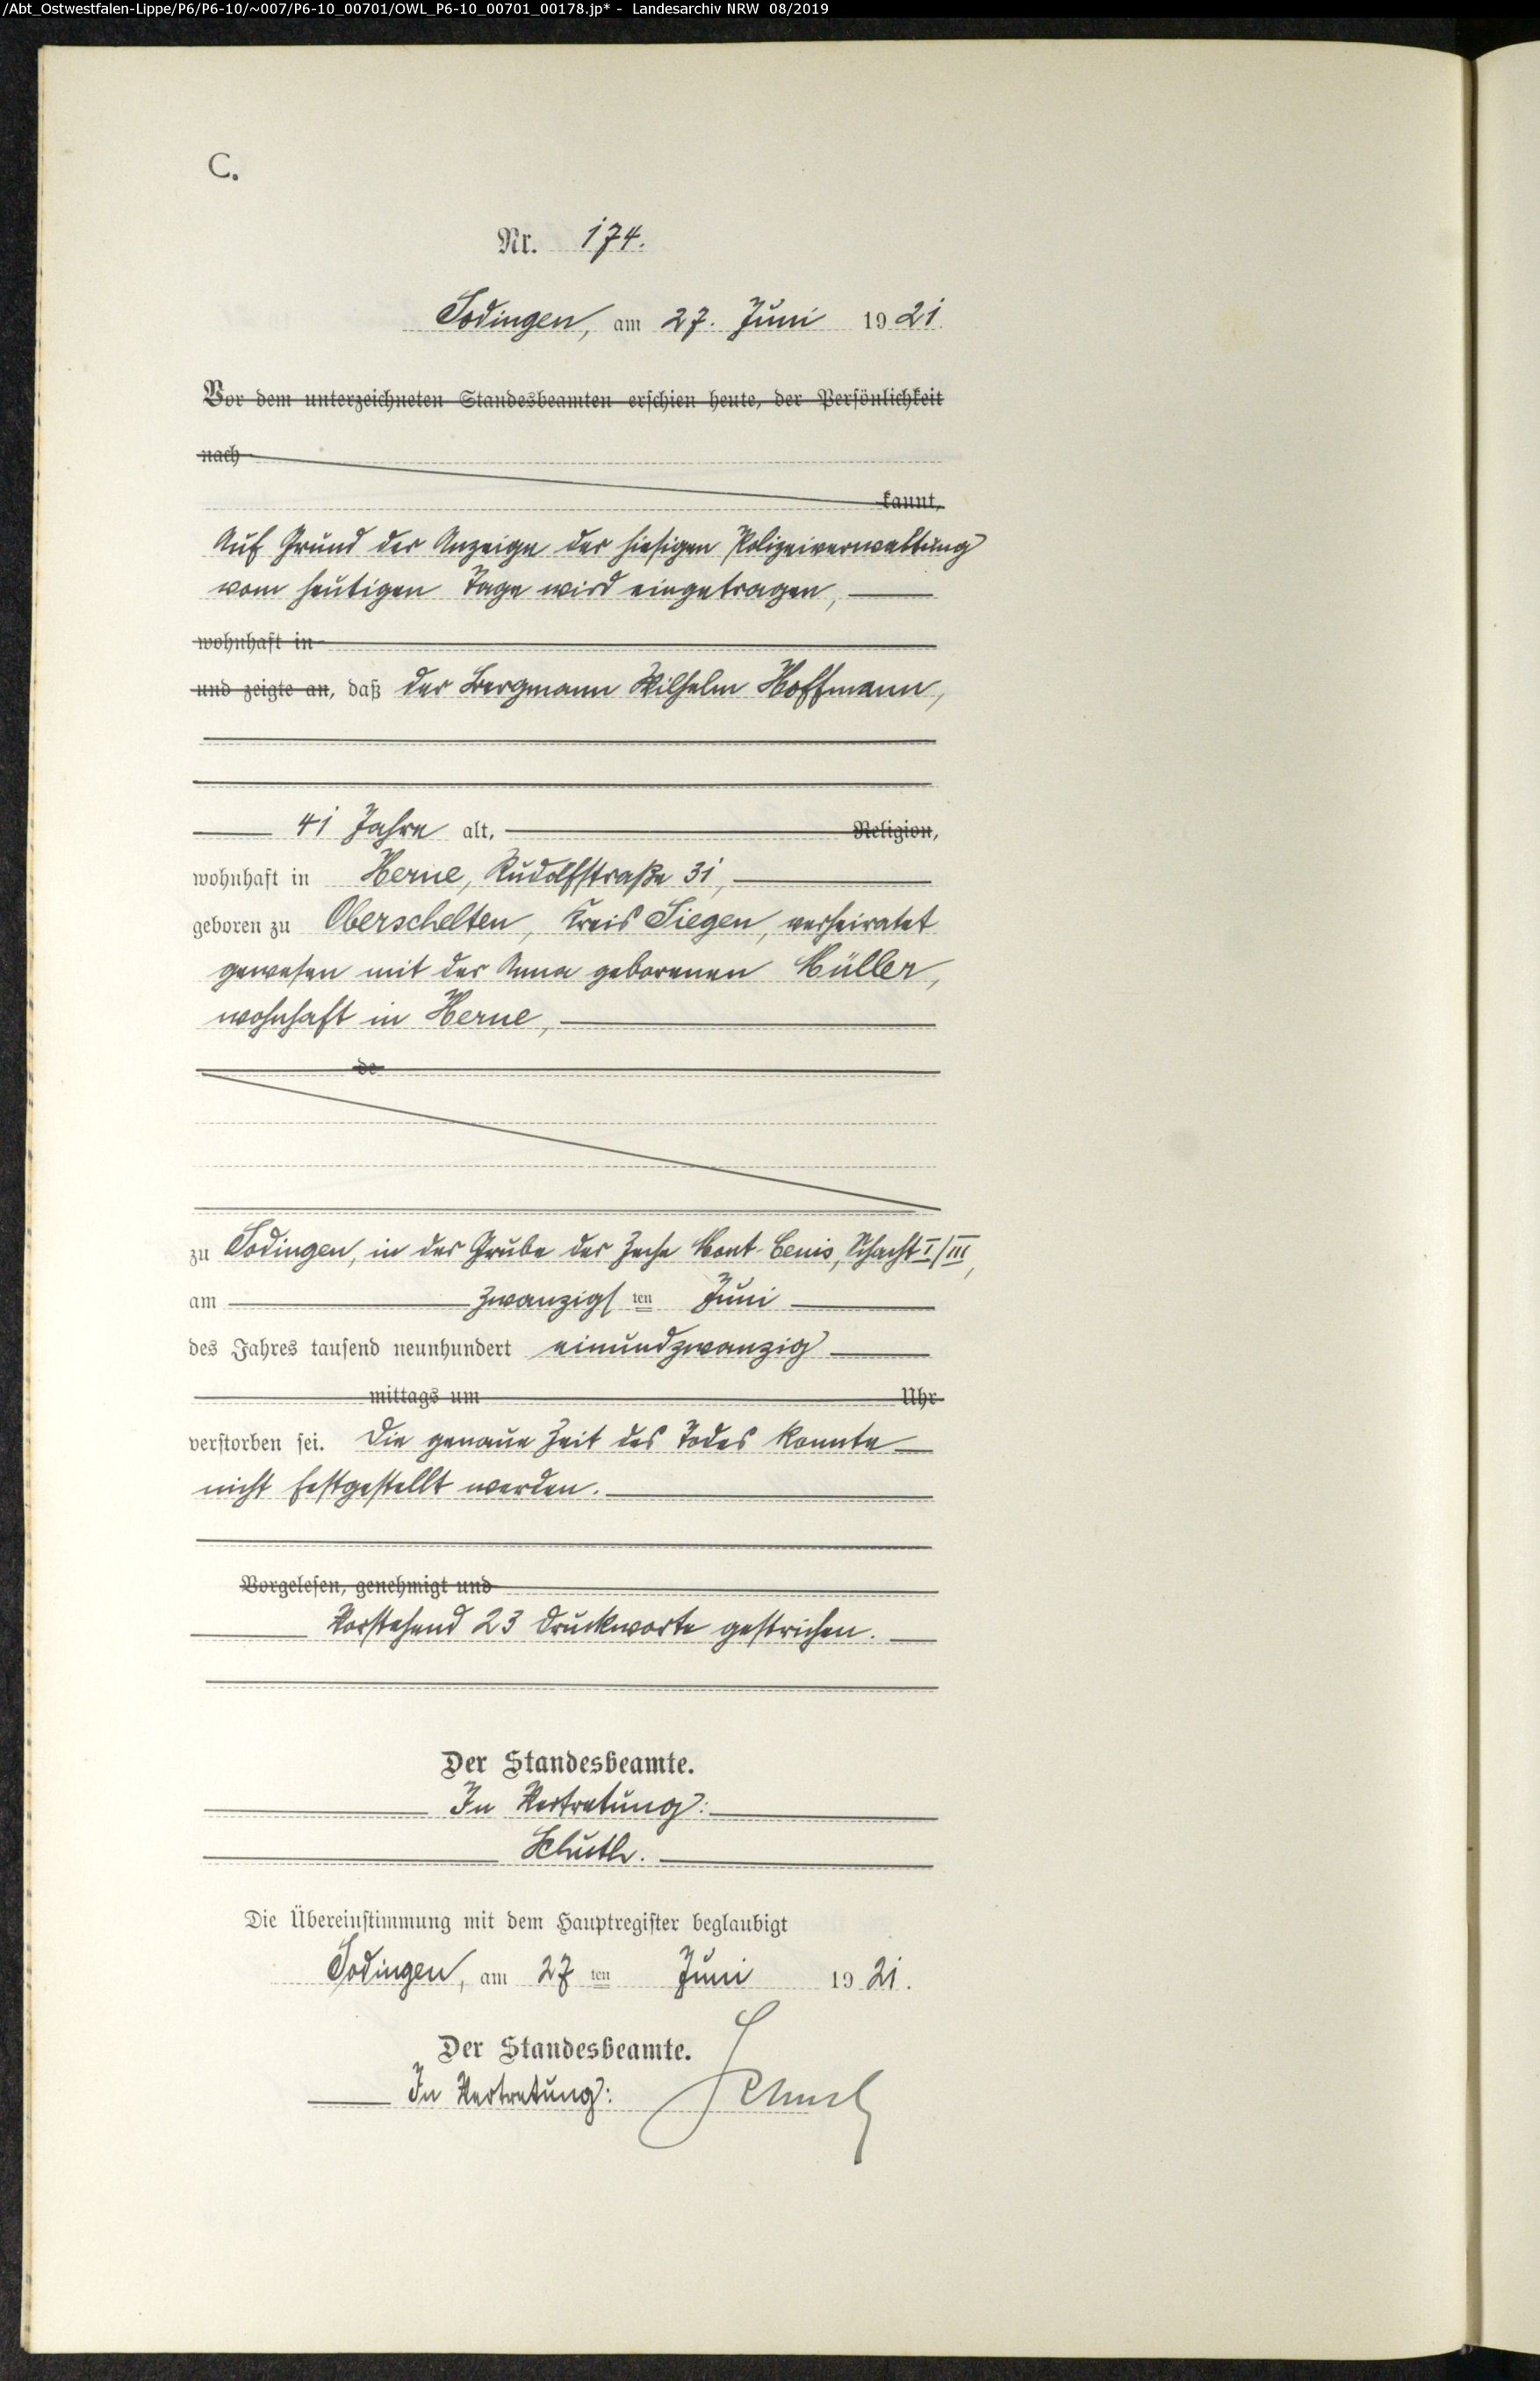 /Abt_Ostwestfalen-Lippe/P6/P6-10/~007/P6-10_00701/OWL_P6-10_00701_00178.jp* - Landesarchiv NRW 08/2019
C.
Nr. 174.
Sodingen, am 27. Juni 1921.
Vor dem unterzeichneten Standesbeamten erschien heute, der Persönlichkeit
nach
kannt,
Auf Grund der Anzeige der hiesigen Polizeiverwaltung
vom heutigen Tage wird eingetragen,
wohnhaft in
und zeigte an, daß der Bergmann Wilhelm Hoffmann,
41 Jahre alt, Religion,
wohnhaft in Herne, Rudolfstraße 31,
geboren zu Oberschelten, Kreis Siegen, verheiratet
gewesen mit der Anna geborenen Müller,
wohnhaft in Herne,
de
zu Sodingen, in der Grube der Zeche Mont-Cenis, Schacht I/III,
am zwanzigsten Juni
des Jahres tausend neunhundert einundzwanzig
mittags um Uhr
verstorben sei. Die genaue Zeit des Todes konnte
nicht festgestellt werden.
Vorgelesen, genehmigt und
Vorstehend 23 Druckworte gestrichen.
Der Standesbeamte.
In Vertretung:
Die Übereinstimmung mit dem Hauptregister beglaubigt
Sodingen, am 27ten Juni 1921.
Der Standesbeamte.
In Vertretung: